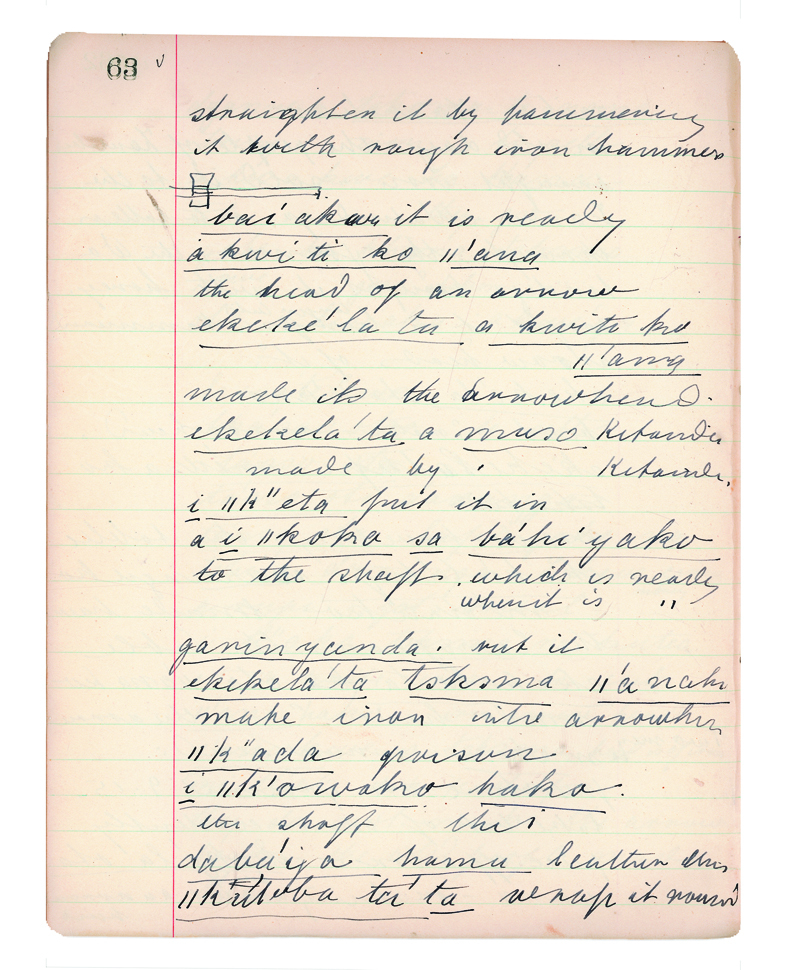 63 v
straighten it by hammering
it with rough iron hammer
bai akwa it is ready
a kwi ti ko ǁ'ana
the head of an arrow
ekeke'la ta a kwiti ko
ǁ'ana
made its the arrowhead.
ekekela'ta a muso Kitandu
made by Kitandu.
i ǁk"eta put it in
a i ǁkoko sa ba'hi'yako
to the shaft. which is ready
when it is "
ganinyanda. put it
ekekela'ta tsksma ǁ'a nahi
make iron into
ǁk"ada poison
i ǁk'owako hako.
shaft this
daba'iga hama leather
ta'ta wrap it round